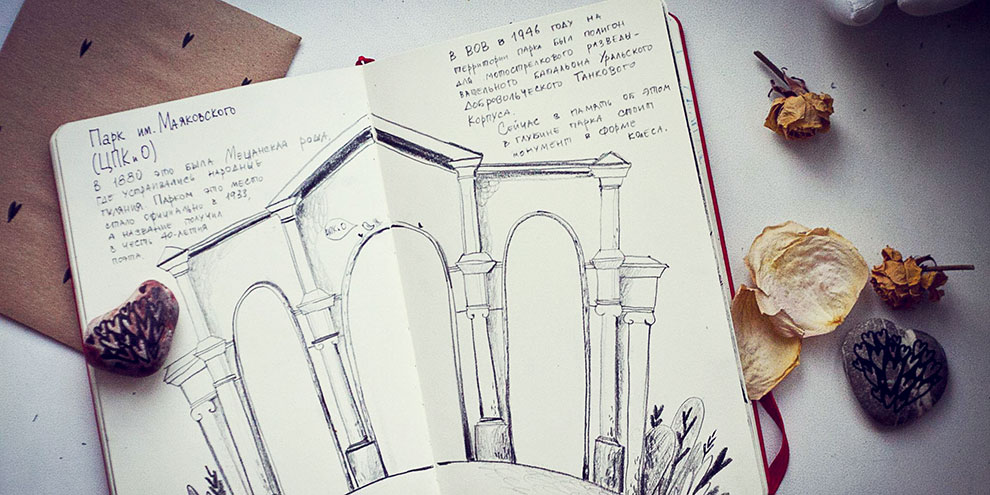 Парк им. Маяковского
(ЦПКиО)
В 1880 это была Мещанская роща,
где устраивались народные
гуляния. Парком это место
стало официально в 1933,
а название получил
в честь 40-летия
поэта.
В ВОВ в 1946 году на
территории парка был полигон
для мотострелкового разведы-
вательного батальона Уральского
Добровольческого Танкового
Корпуса.
Сейчас в память об этом
в глубине парка стоит
монумент в форме колеса.
ЦПКиО